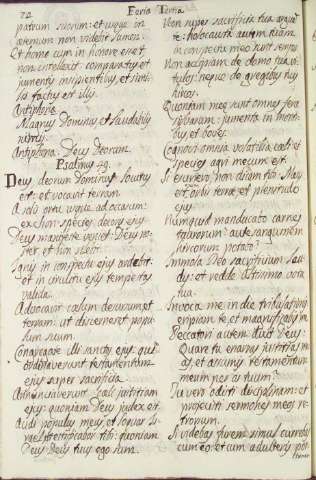 72
Feria Tertia
patrum suorum: et usque in
æternum non videbit lumen.
Et homo cum in honore esset
non intellexit: comparatus est
jumentis insipientibus, et simi-
lis factus est illis.
Antiphona.
Magnus Dominus et laudabilis
nimis.
Antiphona. Deus Deorum.
Psalmus 49.
Deus deorum Dominus locutus
est: et vocavit terram.
A solis ortu usque ad occasum:
ex Sion species decoris ejus.
Deus manifeste veniet: Deus nos-
ter et non silebit.
Ignis in conspectu ejus ardebit:
et in circuitu ejus tempestas
valida.
Advocavit cælum desursum: et
terram ut discerneret popu-
lum suum.
Congregate illi sanctos ejus: qui
ordinaverunt testamentum
ejus super sacrificia.
Annuntiaverunt cæli justitiam
ejus: quoniam Deus judex est.
Audi populus meus et loquar Is-
rael et testificabor tibi: quoniam
Deus Deus tuus ego sum.
Non super sacrificia tua arguam
te: holocausta autem tua
in conspectu meo sunt semper.
Non accipiam de domo tua vi-
tulos: neque de gregibus tuis
hircos.
Quoniam meæ sunt omnes feræ
sylvarum: jumenta in monti-
bus et boves.
Cognovi omnia volatilia cæli: et
species agri mecum est.
Si esuriero non dicam tibi: Meus
est orbis terræ, et plenitudo
ejus.
Numquid manducabo carnes
taurorum: aut sanguinem
hircorum potabo?
Immola Deo sacrificium lau-
dis: et redde Altissimo vota
tua.
Invoca me in die tribulationis
eripiam te, et magnificabis me.
Peccatori autem dixit Deus:
Quare tu enarras justitias me-
as, et assumis testamentum
meum per os tuum?
Tu vero odisti disciplinam: et
projecisti sermones meos re-
trorsum.
Si videbas furem simul currebas
cum eo: et cum adulteris por-